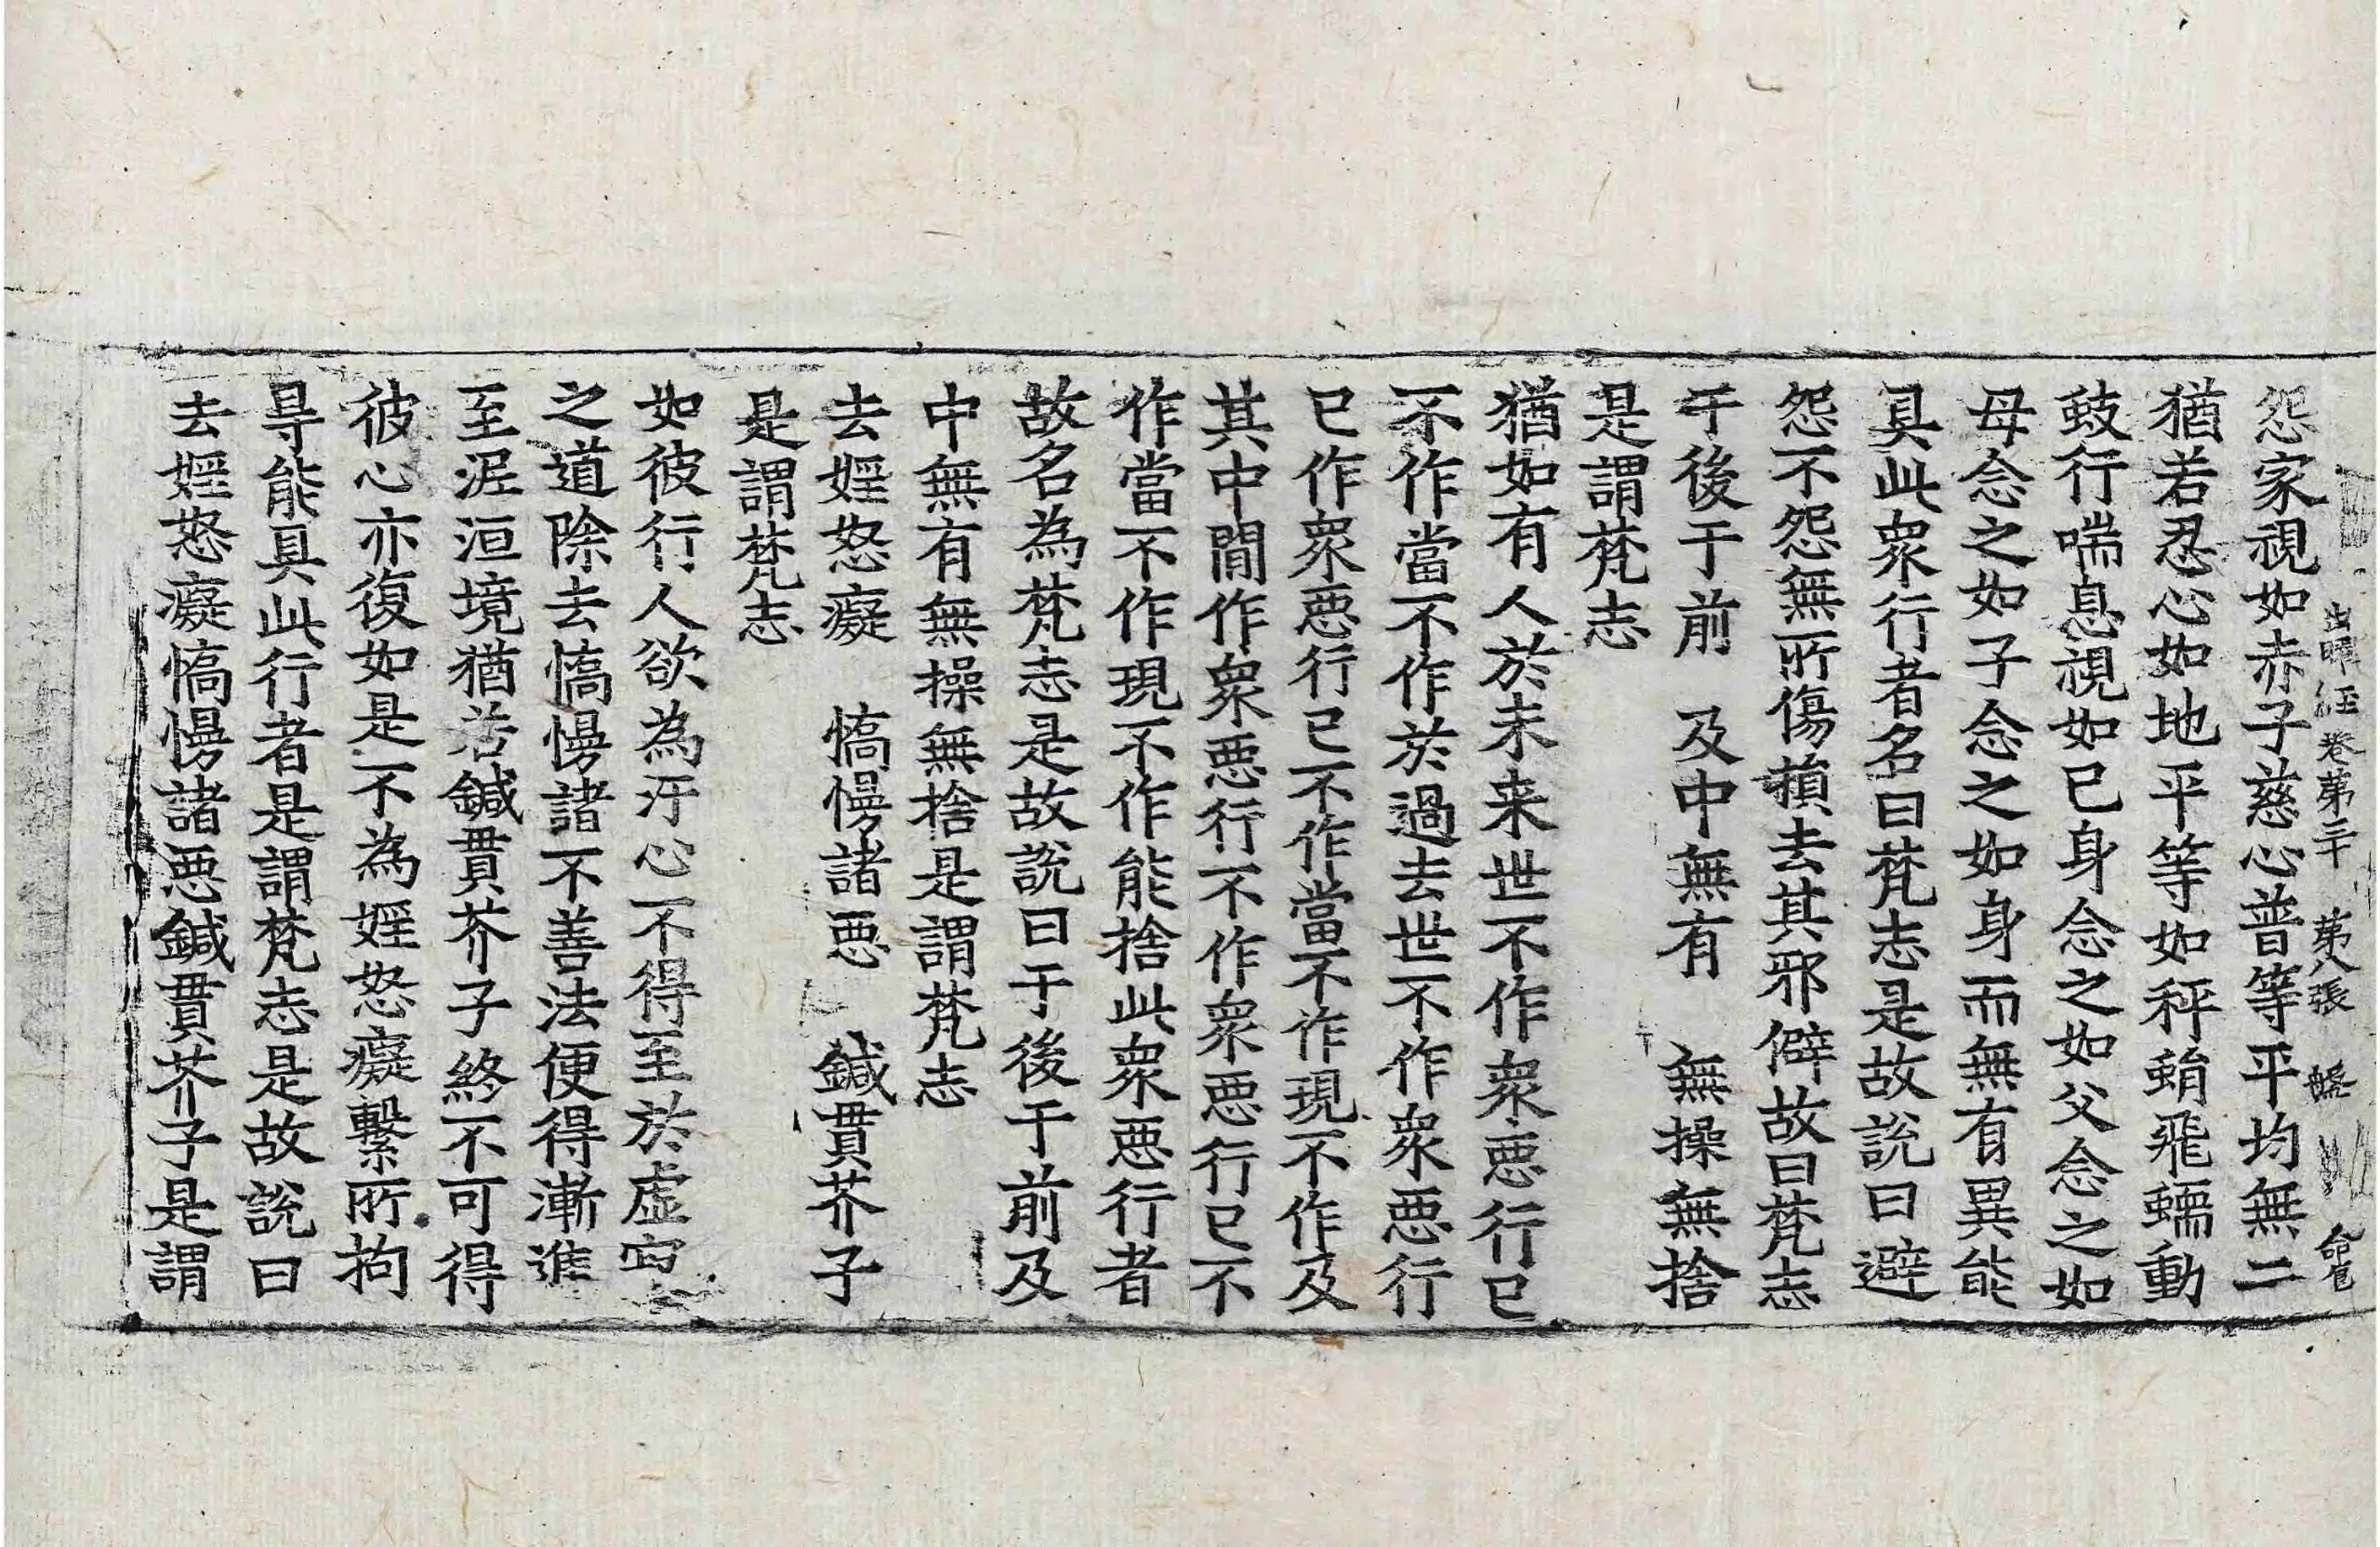 出曜経卷第三十 第八張 盤
怨家視如赤子慈心普等平均無二
猶若忍心如地平等如秤蜎飛蠕動
蚑行喘息視如己身念之如父念之如
母念之如子念之如身而無有異能
具此衆行者名曰梵志是故說曰避
怨不怨無所傷損去其邪僻故曰梵志
于後于前 及中無有 無操無捨
是謂梵志
猶如有人於未来世不作衆惡行已
不作當不作於過去世不作衆惡行
已作衆惡行已不作當不作現不作及
其中間作衆惡行不作衆惡行已不
作當不作現不作能捨此衆惡行者
故名為梵志是故說曰于後于前及
中無有無操無捨是謂梵志
去婬怒癡 憍慢諸惡 鍼貫芥子
是謂梵志
如彼行人欲為汙心不得至於虛空
之道除去憍慢諸不善法便得漸進
至泥洹境猶若鍼貫芥子終不可得
彼心亦復如是不為婬怒癡繫所拘
㝵能具此行者是謂梵志是故說曰
去婬怒癡憍慢諸惡鍼貫芥子是謂